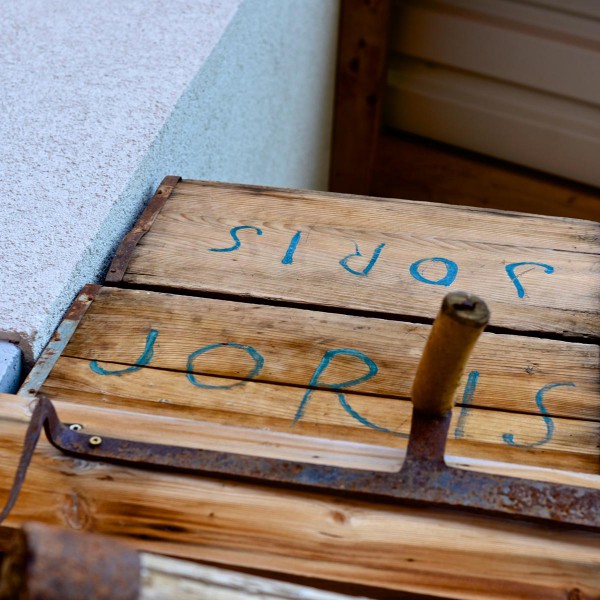 JORIS
JORIS